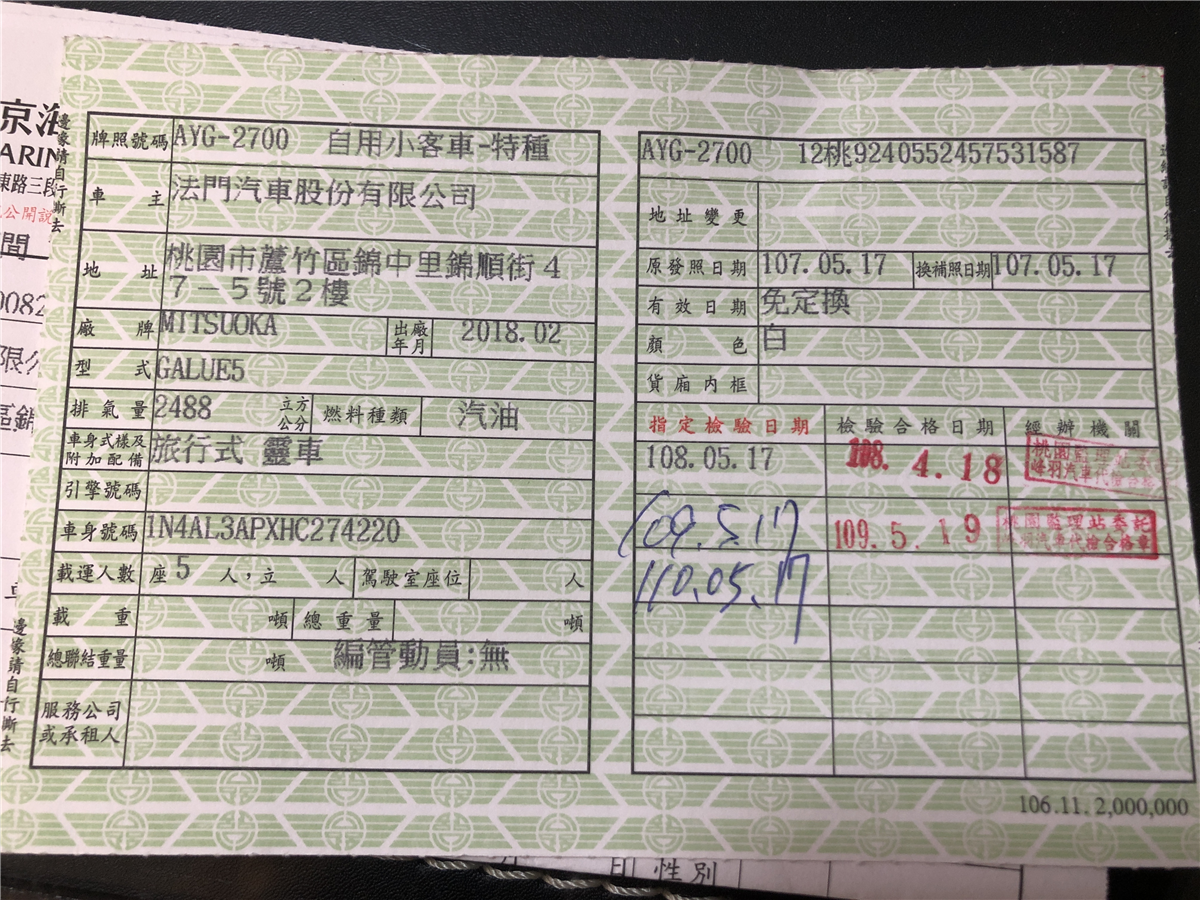 京海
ARIN
東路三段
公開說
間
0082
限公
區錦
邊緣請自行撕去
牌照號碼 AYG-2700 自用小客車-特種
車主 法門汽車股份有限公司
地址 桃園市蘆竹區錦中里錦順街４
７－５號２樓
廠牌 MITSUOKA 出廠年月 2018.02
型式 GALUE5
排氣量 2488 立方公分 燃料種類 汽油
車身式樣及附加配備 旅行式 靈車
引擎號碼
車身號碼 1N4AL3APXHC274220
載運人數 座5 人，立 人 駕駛室座位 人
載重 噸 總重量 噸
總聯結重量 噸 編管動員:無
服務公司或承租人
邊緣請自行撕去
AYG-2700 12桃9240552457531587
地址變更
原發照日期 107.05.17 換補照日期 107.05.17
有效日期 免定換
顏色 白
貨廂內框
指定檢驗日期 檢驗合格日期 經辦機關
108.05.17 108.4.18
109.5.17 109.5.19 桃園監理站委託
汽車代檢合格章
110.05.17
106.11.2,000,000
性別